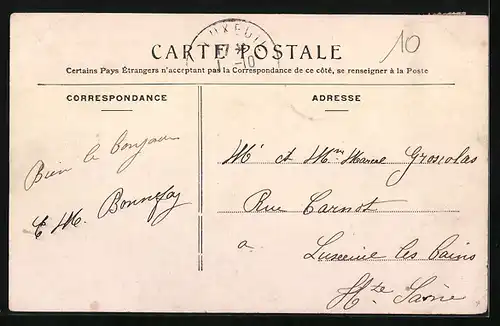 LUXEUIL
10
CARTE POSTALE
Certains Pays Étrangers n'acceptant pas la Correspondance de ce côté, se renseigner à la Poste
CORRESPONDANCE
Bien le bonjour
M. Bonnefoy
ADRESSE
Mr et Mme Marcel Grosjolas
Rue Carnot
a
Luxeuil les Bains
Hte Saône
10